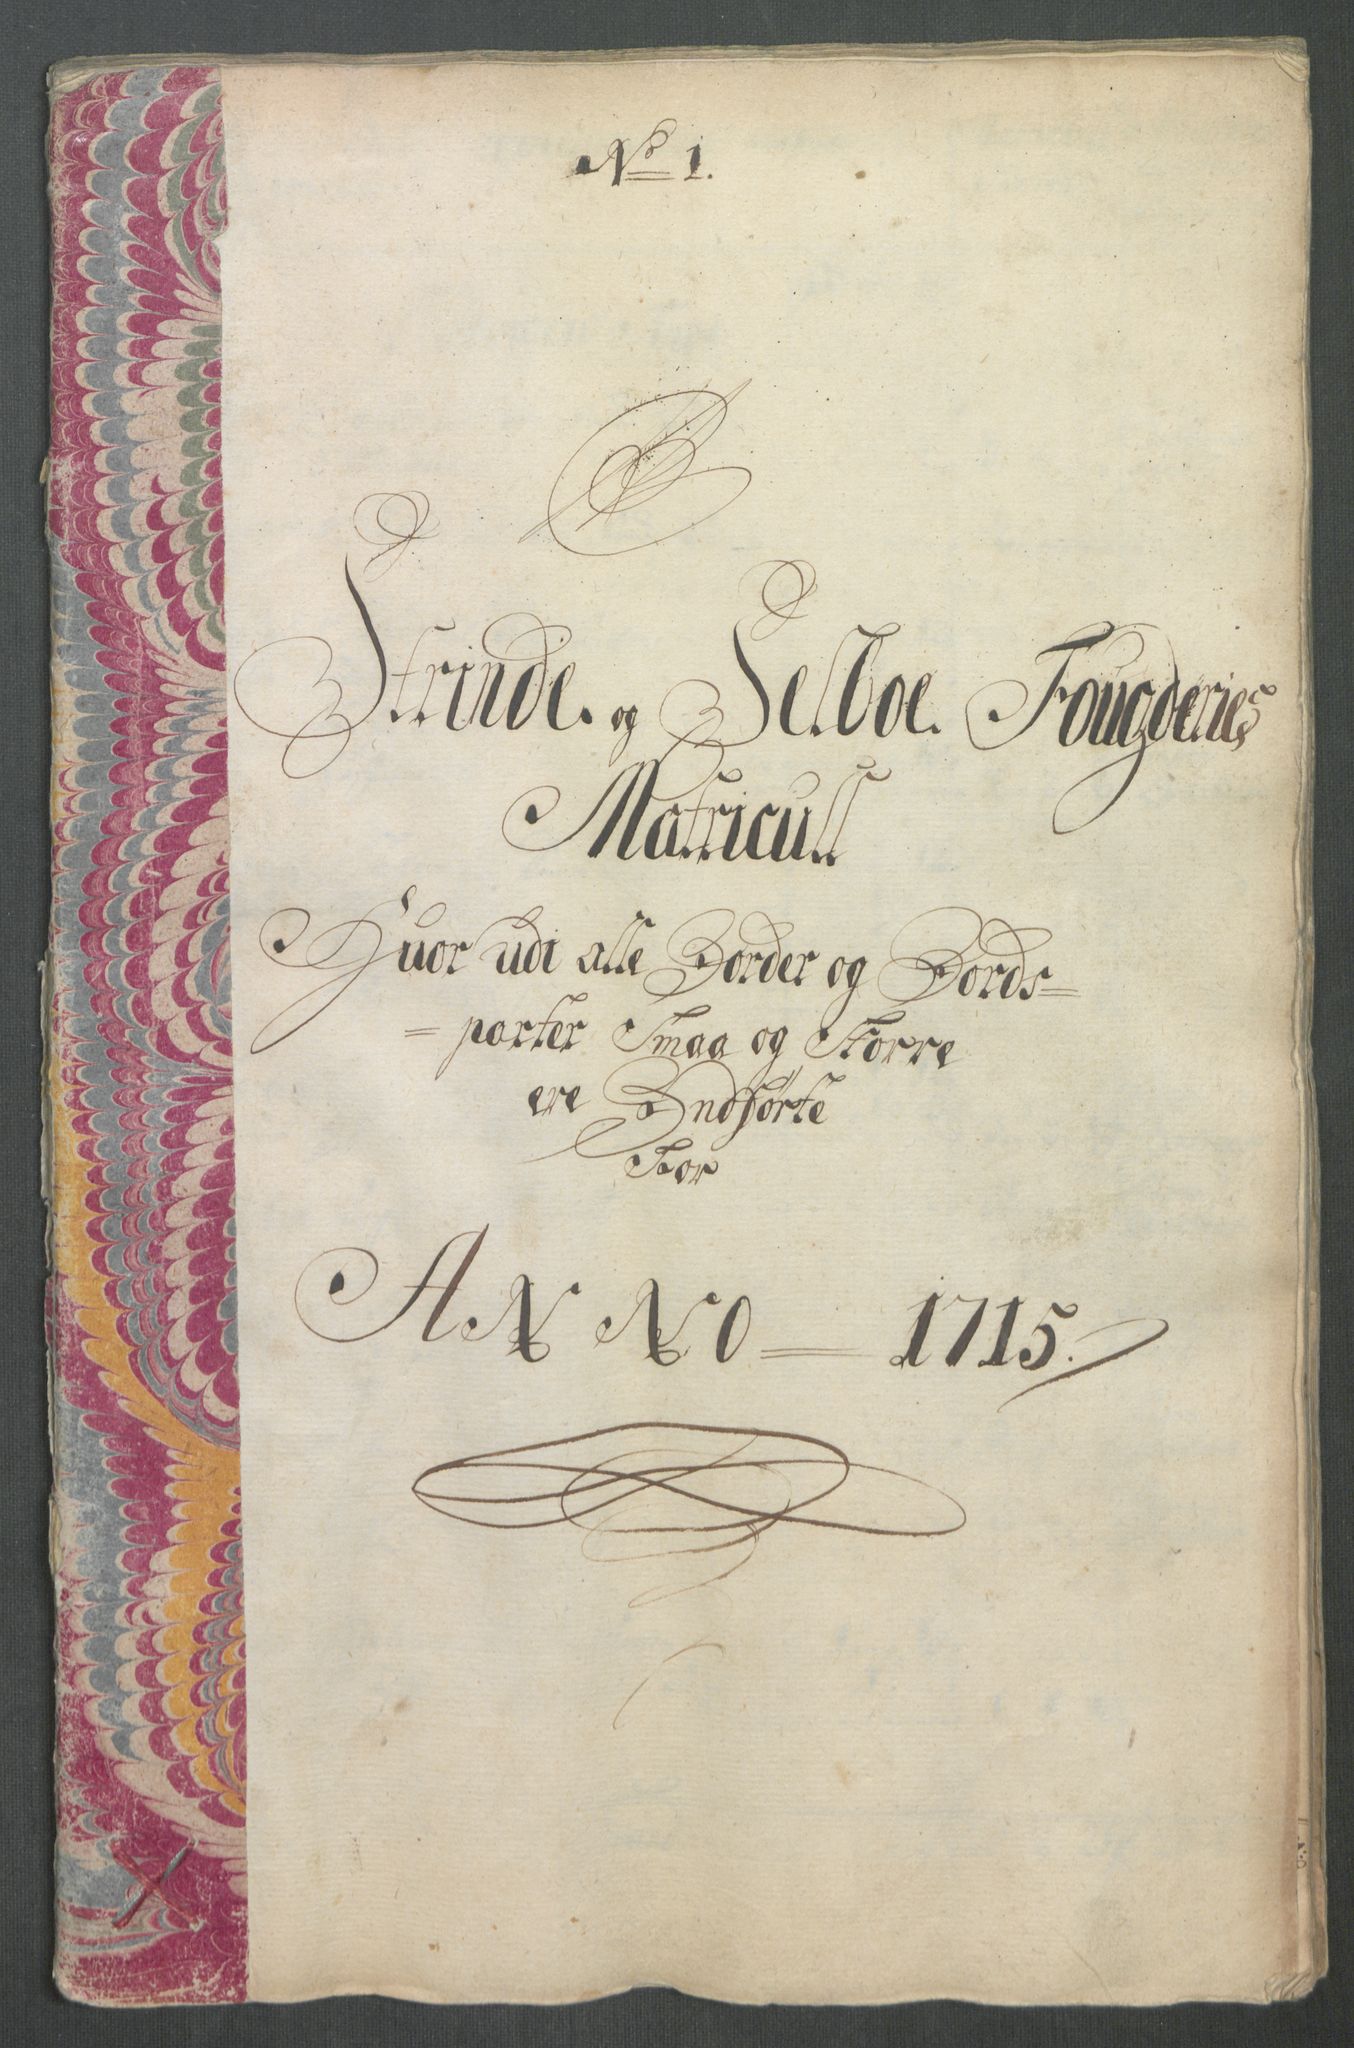 No 1.
Strinde. og Selboe. Fougderies
Matricull
Huor udi alle Gorder og Gords=
= parter Smaa og Storre
ere Indførte
For
ANNO = 1715.